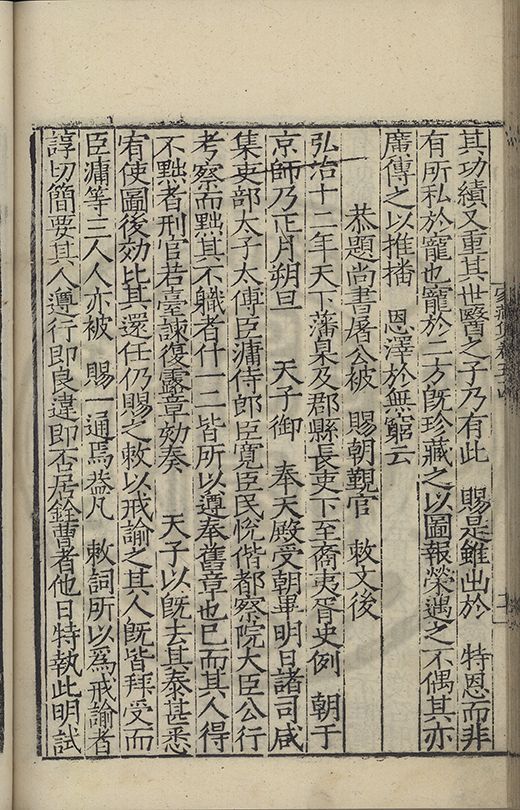 其功績又重其世醫之子乃有此　賜是雖出於　特恩而非
有所私於寵也寵於二方旣珍藏之以圖報榮遇之不偶其亦
廣傳之以推播　恩澤於無窮云
恭題尚書屠公被　賜朝覲官　敕文後
弘治十二年天下藩臬及郡縣長吏下至裔夷胥史例　朝于
京師乃正月朔旦　天子御　奉天殿受朝畢明日諸司咸
集吏部太子太傅臣滽侍郎臣寬臣民悅偕都察院大臣公行
考察而黜其不職者什一二皆所以遵奉舊章也已而其人得
不黜者刑官若臺諫復露章劾奏　天子以旣去其泰甚悉
宥使圖後効比其還任仍賜之敕以戒諭之其人旣皆拜受而
臣滽等三人人亦被　賜一通焉葢凡　敕詞所以爲戒諭者
諄切簡要其人遵行即良違即否居銓曹者他日特執此明試
家藏集卷五十